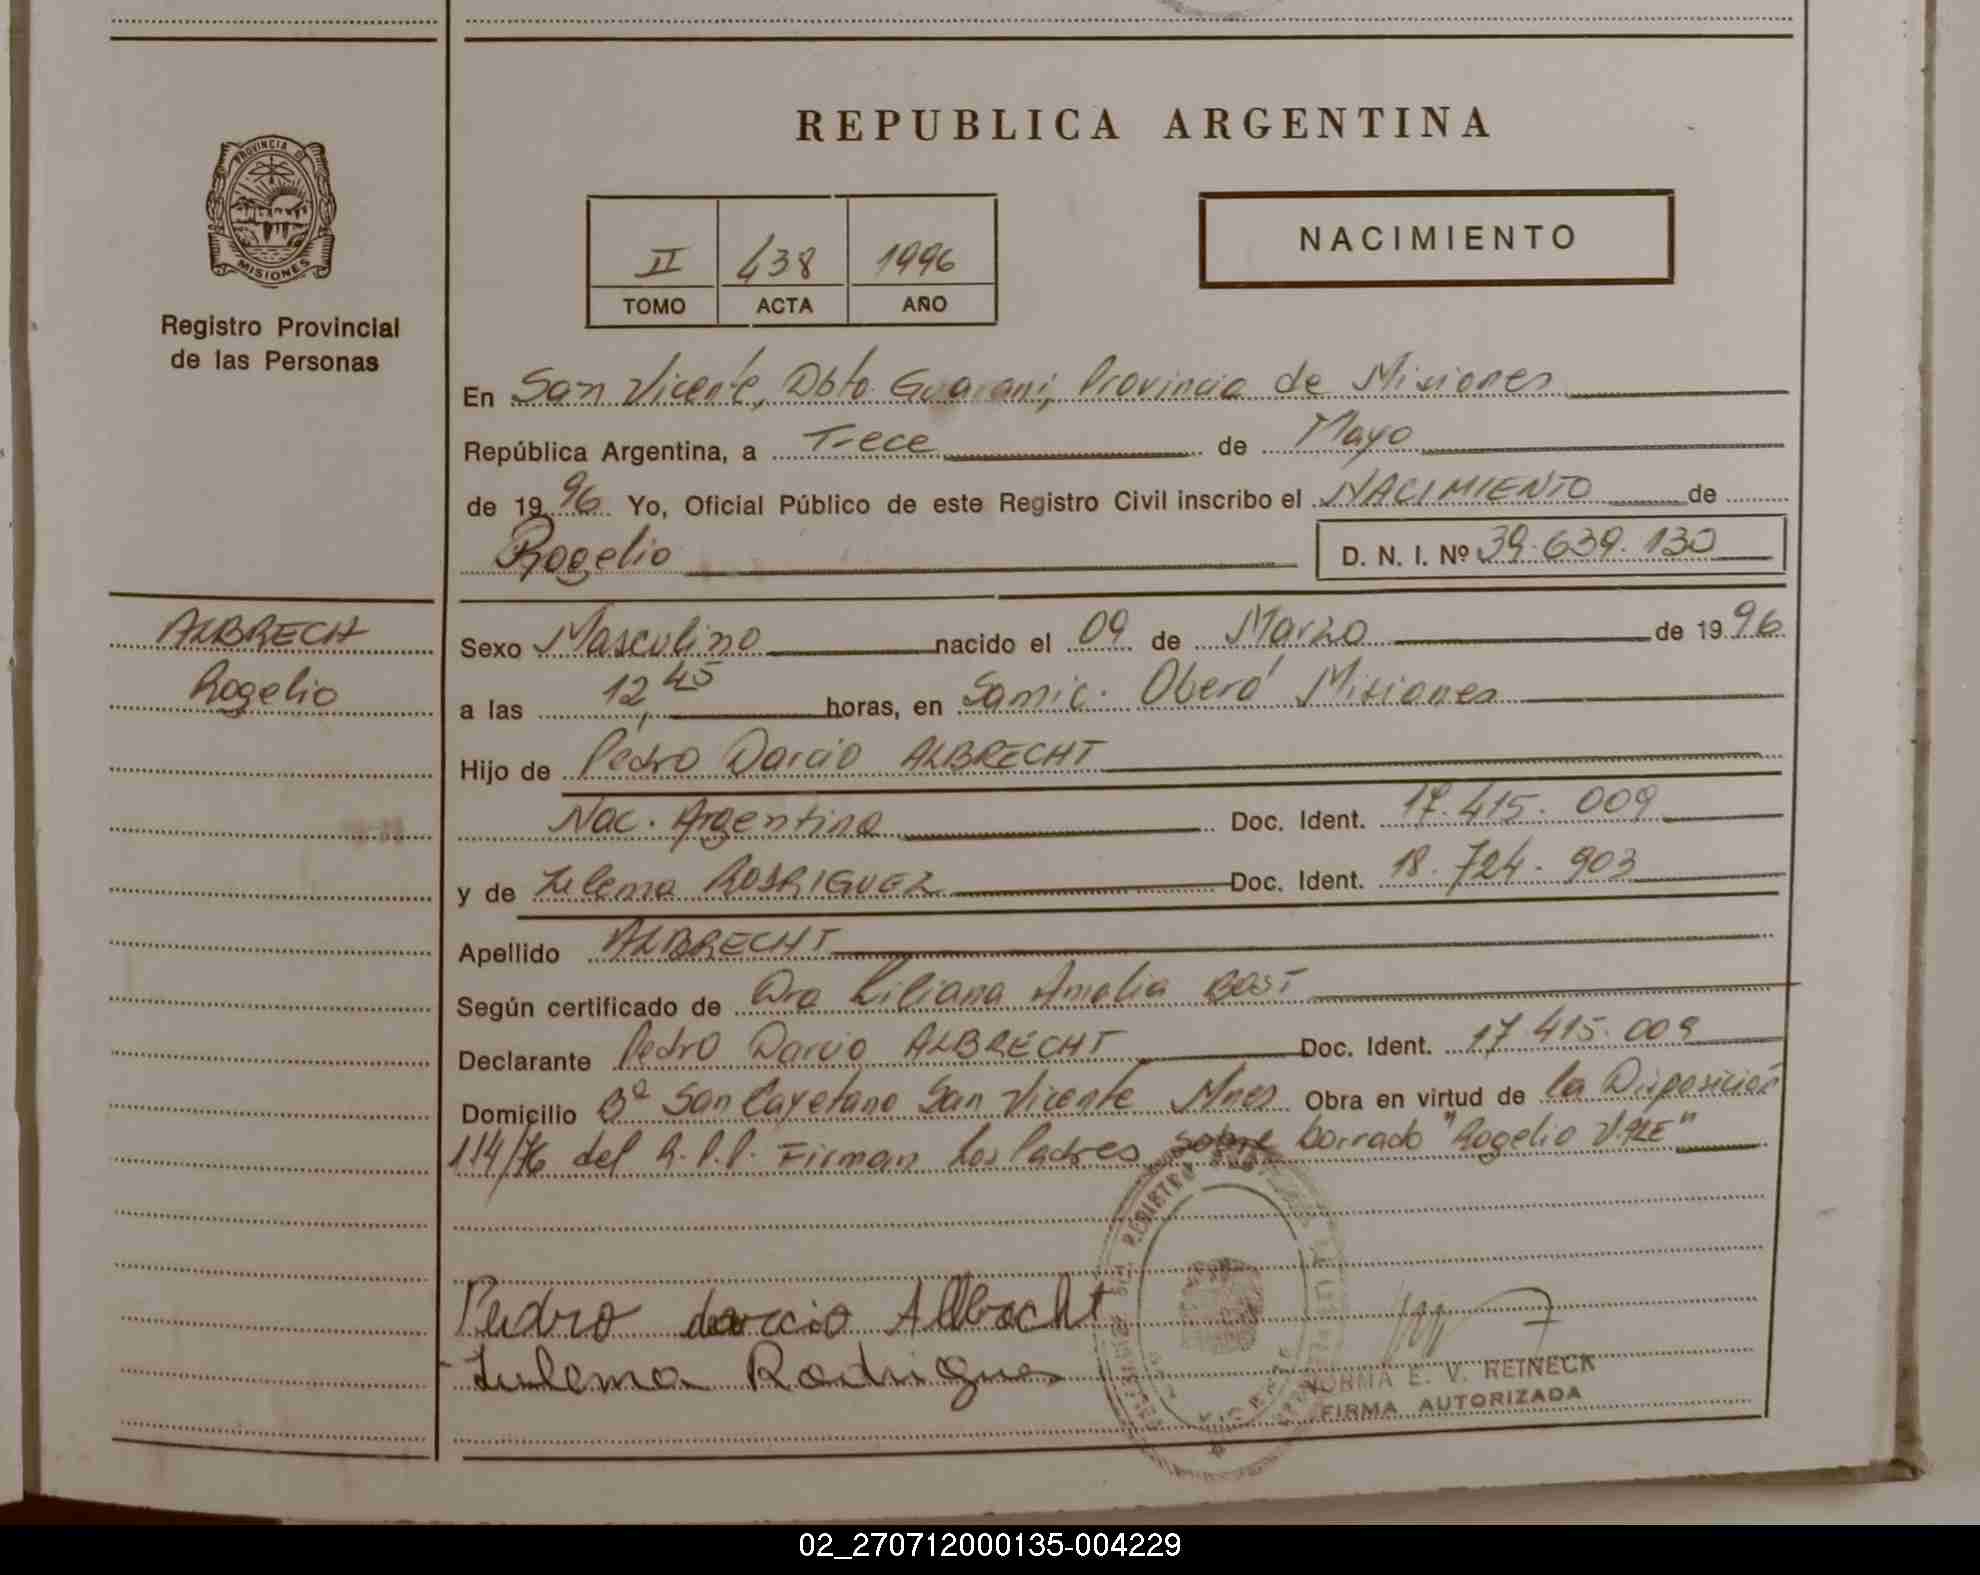 REPUBLICA ARGENTINA
PROVINCIA D
MISIONES
Registro Provincial
de las Personas
II 438 1996
TOMO ACTA AÑO
NACIMIENTO
En San Vicente, Dpto. Guaraní, Provincia de Misiones
República Argentina, a Trece de Mayo
de 1996 Yo, Oficial Público de este Registro Civil inscribo el NACIMIENTO de
Rogelio D. N. I. Nº 39.639.130
ALBRECH
Rogelio
Sexo Masculino nacido el 09 de Marzo de 1996
a las 12,45 horas, en Samic. Oberá Misiones
Hijo de Pedro Darcio ALBRECHT
Nac. Argentina Doc. Ident. 17.415.009
y de Zulema RODRIGUEZ Doc. Ident. 18.724.903
Apellido ALBRECHT
Según certificado de Dra Liliana Amalia BOST
Declarante Pedro Darcio ALBRECHT Doc. Ident. 17.415.009
Domicilio Bº San Cayetano San Vicente Mnes Obra en virtud de la Disposición
114/76 del R.P.P. Firman Los Padres sobre borrado "Rogelio VALE"
Pedro darcio Allbrecht
Zulema Rodrigues
NORMA E. V. REINECK
FIRMA AUTORIZADA
02_270712000135-004229